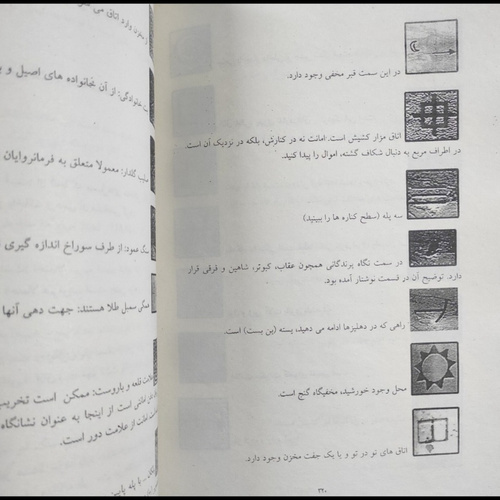 در این سمت قبر مخفی وجود دارد.
اتاق مزار کشیش است. امانت نه در کنارش، بلکه در نزدیک آن است.
در اطراف مربع به دنبال شکاف گشته، اموال را پیدا کنید.
سه پله (سطح کناره ها را ببینید)
در سمت نگاه پرندگانی همچون عقاب، کبوتر، شاهین و قرقی قرار
دارد. توضیح آن در قسمت نوشتار آمده بود.
راهی که در دهلیزها ادامه می دهید، بسته (بن بست) است.
محل وجود خورشید، مخفیگاه گنج است.
اتاق های تو در تو و یا یک جفت مخزن وجود دارد.
۲۴۰
ستون وارد اتاق می
خانوادگی: از آن نجانواده های اصیل و
صلیب گلدار: معمولا متعلق به فرمانروایان
سگ عمود: از طرف سوراخ اندازه گیری
سمبل طلا هستند: جهت دهی آنها
علامت قلعه و باروست: ممکن است تخریب
است از اینجا به عنوان نشانگاه
از علامت دور است.